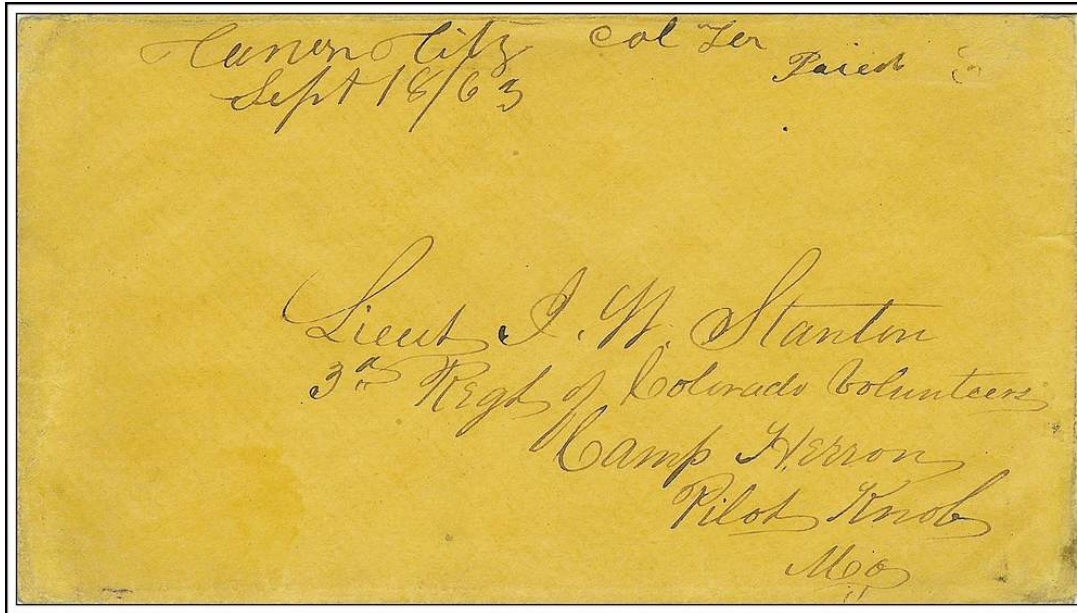 Canon City Col Ter Paied 3
Sept 18/63
Lieut I. W. Stanton
3rd Regt of Colorado Volunteers
Camp Herron
Pilot Knob
Mo